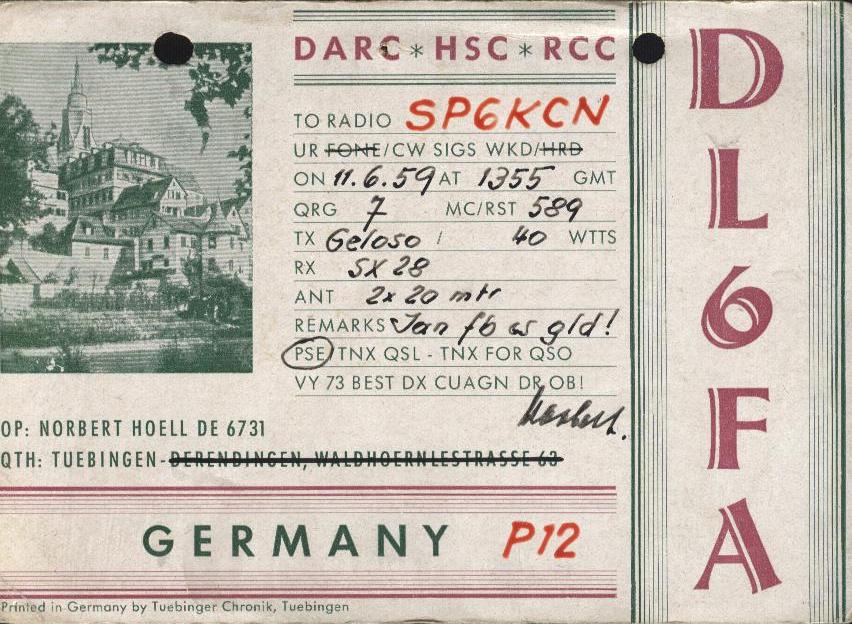 DARC * HSC * RCC
TO RADIO SP6KCN
UR FONE/CW SIGS WKD/HRD
ON 11.6.59 AT 1355 GMT
QRG 7 MC/RST 589
TX Geloso / 40 WTTS
RX SX 28
ANT 2x20 mtr
REMARKS Jan fb es gld!
PSE/TNX QSL - TNX FOR QSO
VY 73 BEST DX CUAGN DR OB!
Norbert.
OP: NORBERT HOELL DE 6731
QTH: TUEBINGEN-DERENDINGEN, WALDHOERNLESTRASSE 63
GERMANY P12
Printed in Germany by Tuebinger Chronik, Tuebingen
DL6FA